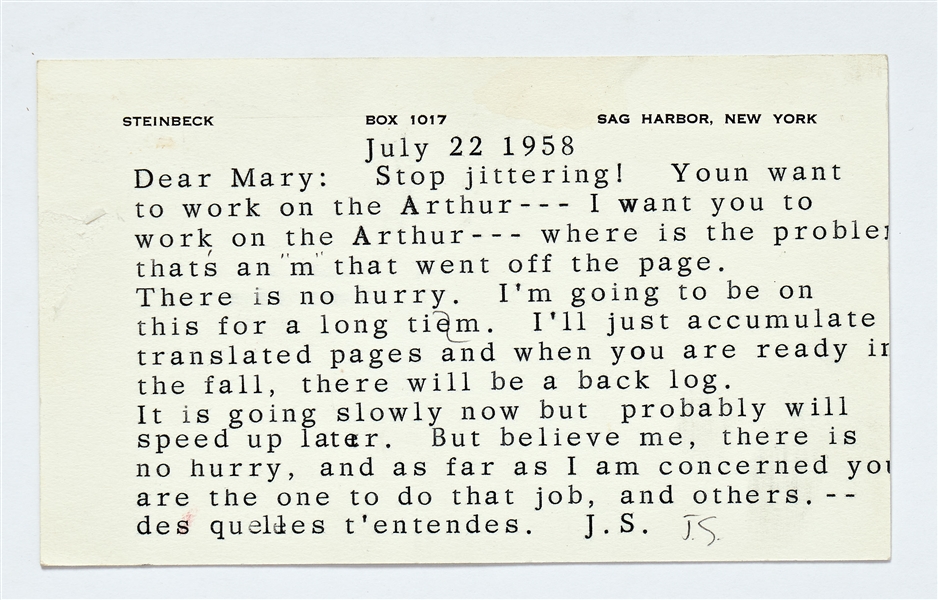 STEINBECK BOX 1017 SAG HARBOR, NEW YORK
July 22 1958
Dear Mary: Stop jittering! Youn want
to work on the Arthur--- I want you to
work on the Arthur--- where is the proble
that's an "m" that went off the page.
There is no hurry. I'm going to be on
this for a long tiem. I'll just accumulate
translated pages and when you are ready in
the fall, there will be a back log.
It is going slowly now but probably will
speed up later. But believe me, there is
no hurry, and as far as I am concerned you
are the one to do that job, and others. --
des quelles t'entendes. J.S. J.S.